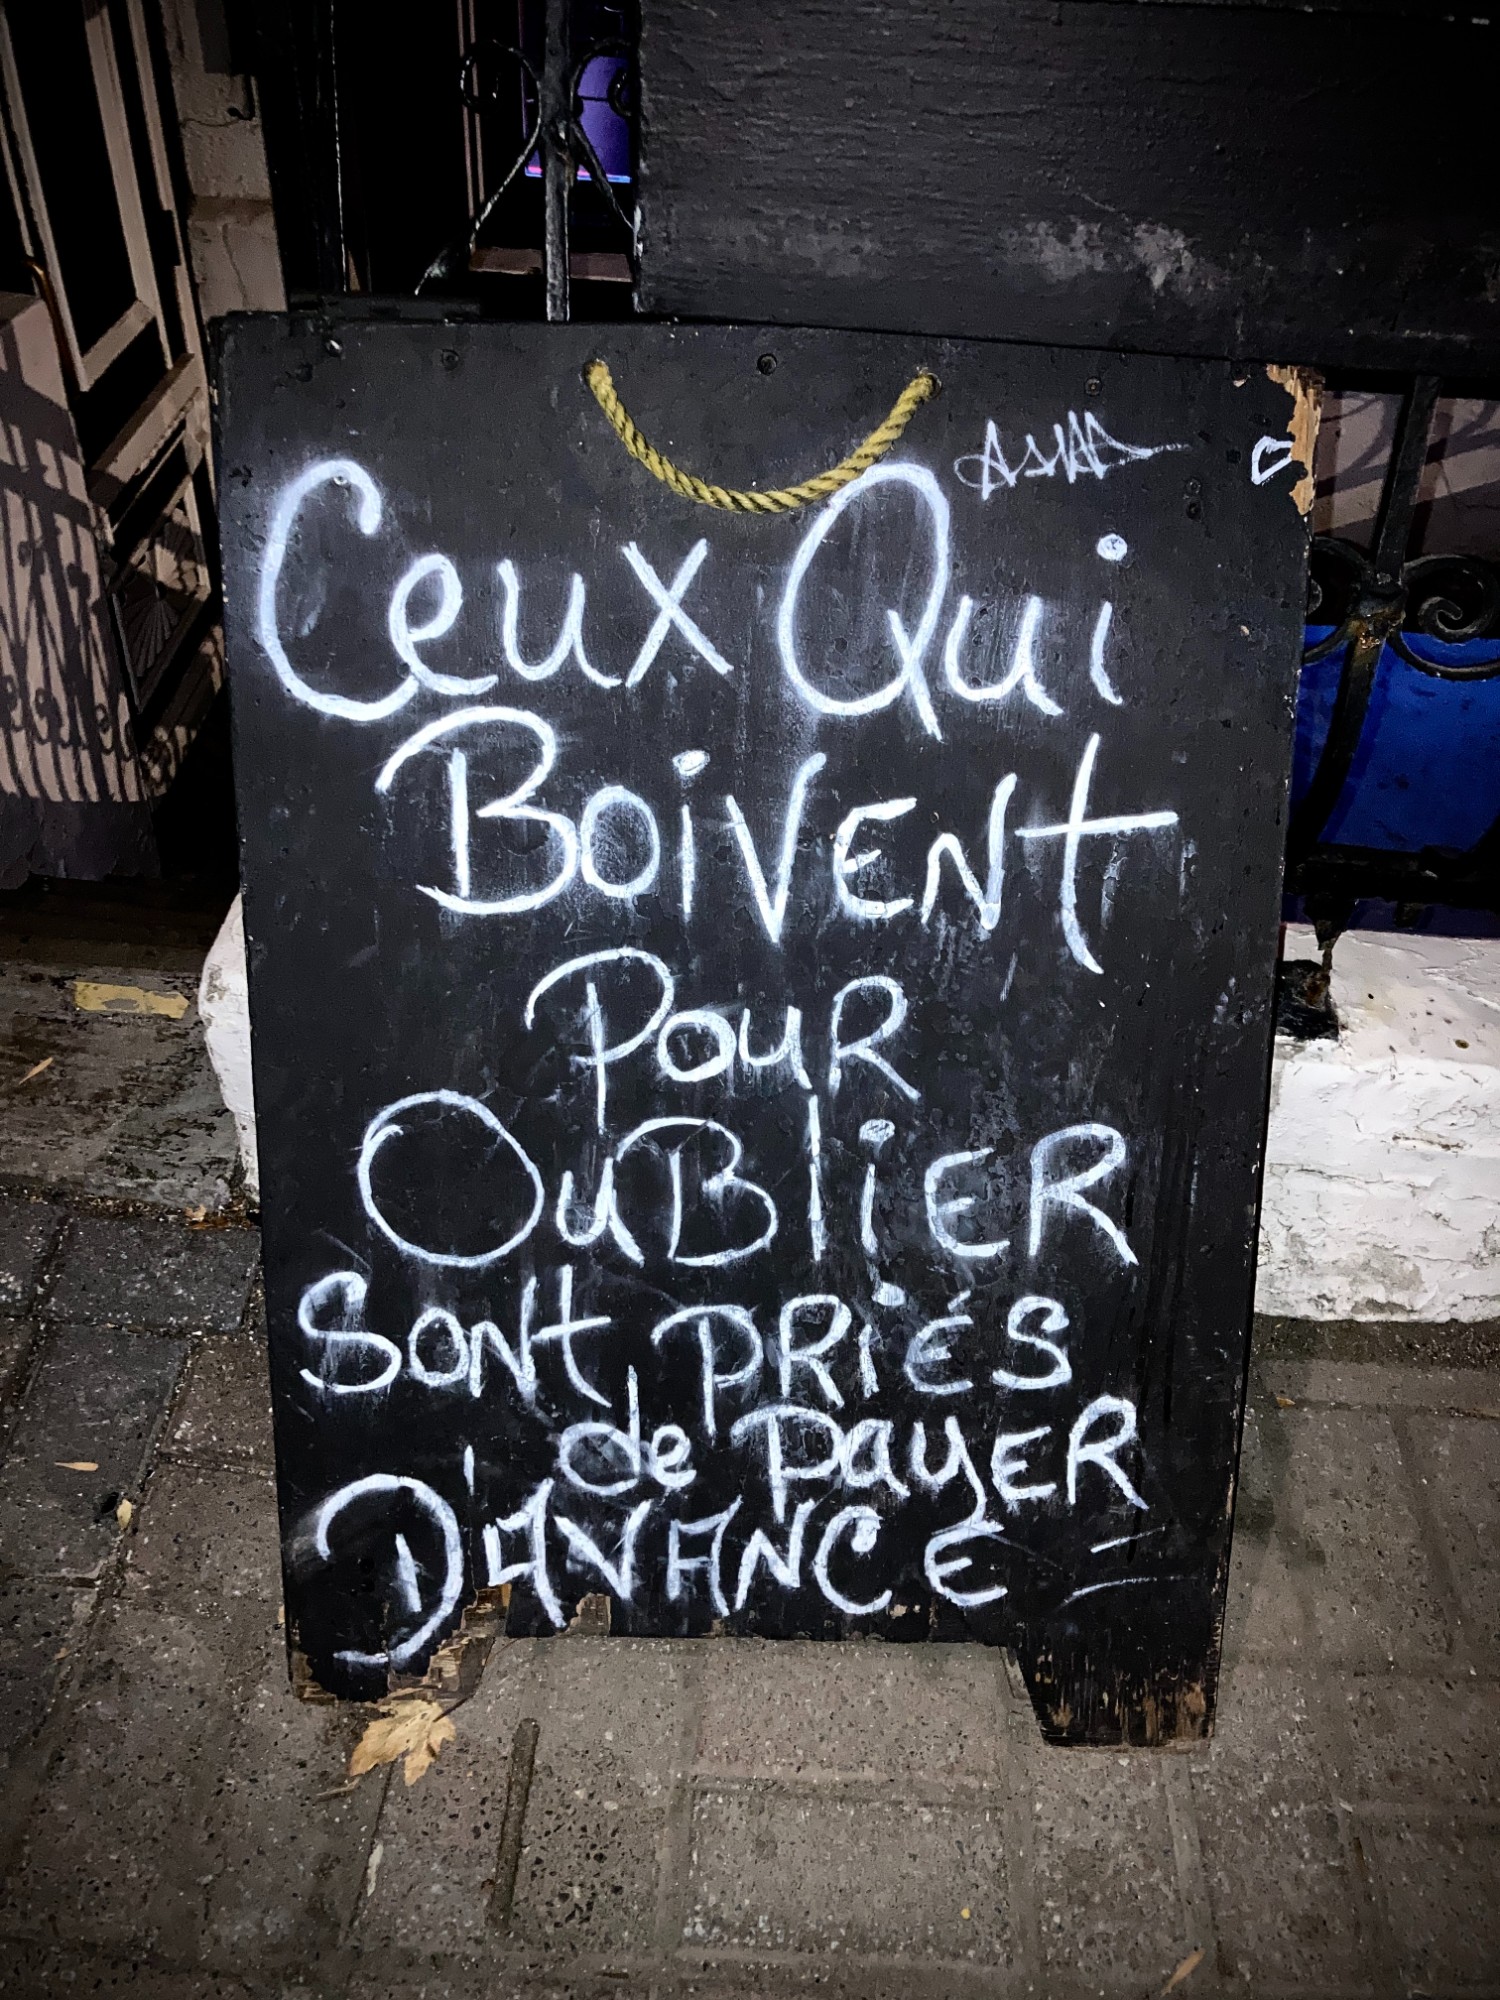 Ceux Qui
BoiVENt
PouR
OuBliER
SoNt PRiéS
de PayER
D'AVANCE